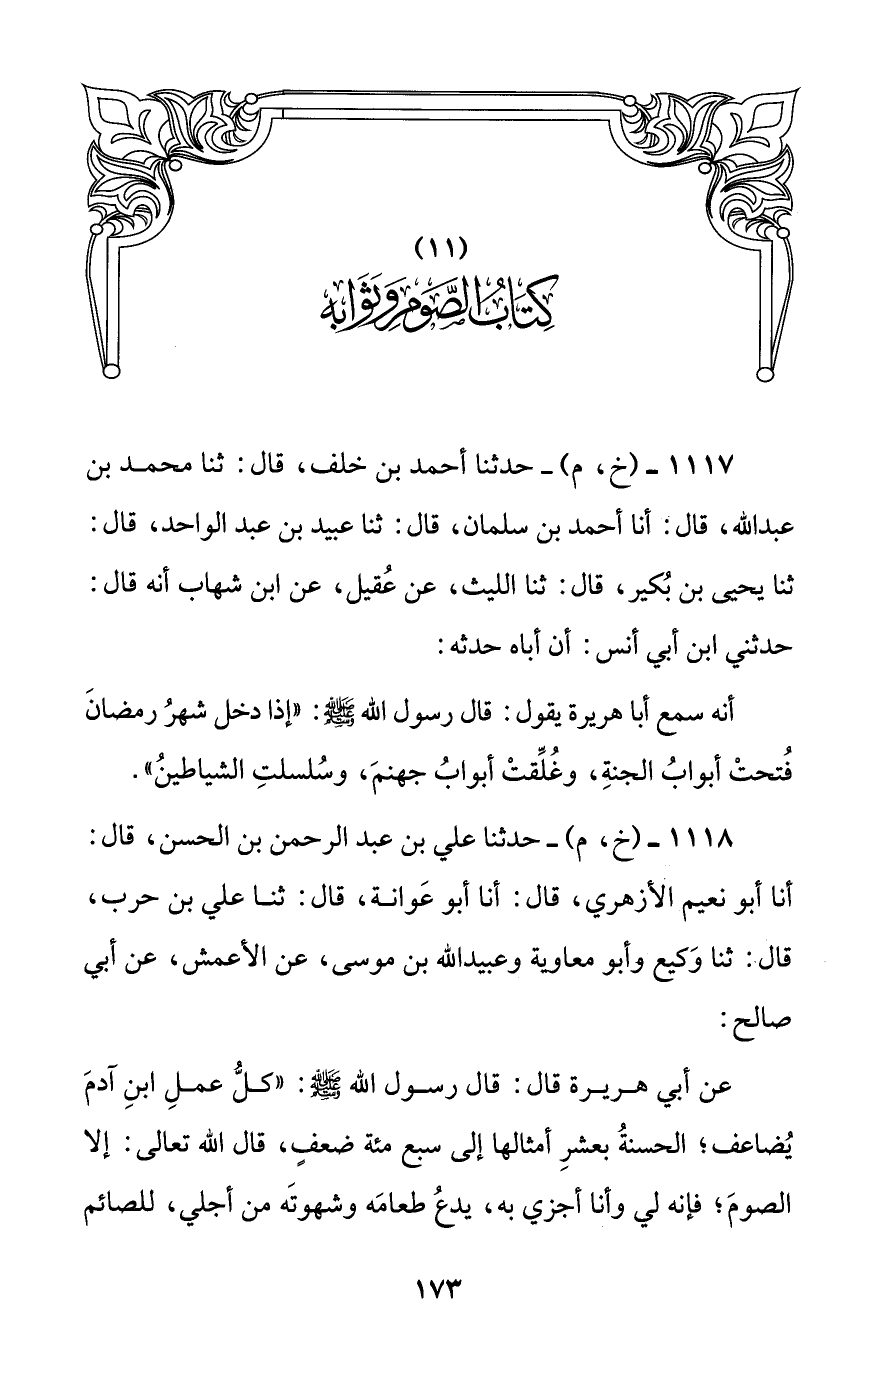 (١١)
كِتَابُ الصَّوْمِ وَثَوَابِهِ
١١١٧ - (خ، م) - حدثنا أحمد بن خلف، قال: ثنا محمد بن
عبدالله، قال: أنا أحمد بن سلمان، قال: ثنا عبيد بن عبد الواحد، قال:
ثنا يحيى بن بُكير، قال: ثنا الليث، عن عُقيل، عن ابن شهاب أنه قال:
حدثني ابن أبي أنس: أن أباه حدثه:
أنه سمع أبا هريرة يقول: قال رسول الله ﷺ: «إذا دخل شهرُ رمضانَ
فُتحتْ أبوابُ الجنةِ، وغُلِّقتْ أبوابُ جهنمَ، وسُلسلتِ الشياطينُ».
١١١٨ - (خ، م) - حدثنا علي بن عبد الرحمن بن الحسن، قال:
أنا أبو نعيم الأزهري، قال: أنا أبو عَوانة، قال: ثنا علي بن حرب،
قال: ثنا وَكيع وأبو معاوية وعبيدالله بن موسى، عن الأعمش، عن أبي
صالح:
عن أبي هريرة قال: قال رسول الله ﷺ: «كلُّ عملِ ابنِ آدمَ
يُضاعف؛ الحسنةُ بعشرِ أمثالها إلى سبع مئة ضعفٍ، قال الله تعالى: إلا
الصومَ؛ فإنه لي وأنا أجزي به، يدعُ طعامَه وشهوتَه من أجلي، للصائم
١٧٣